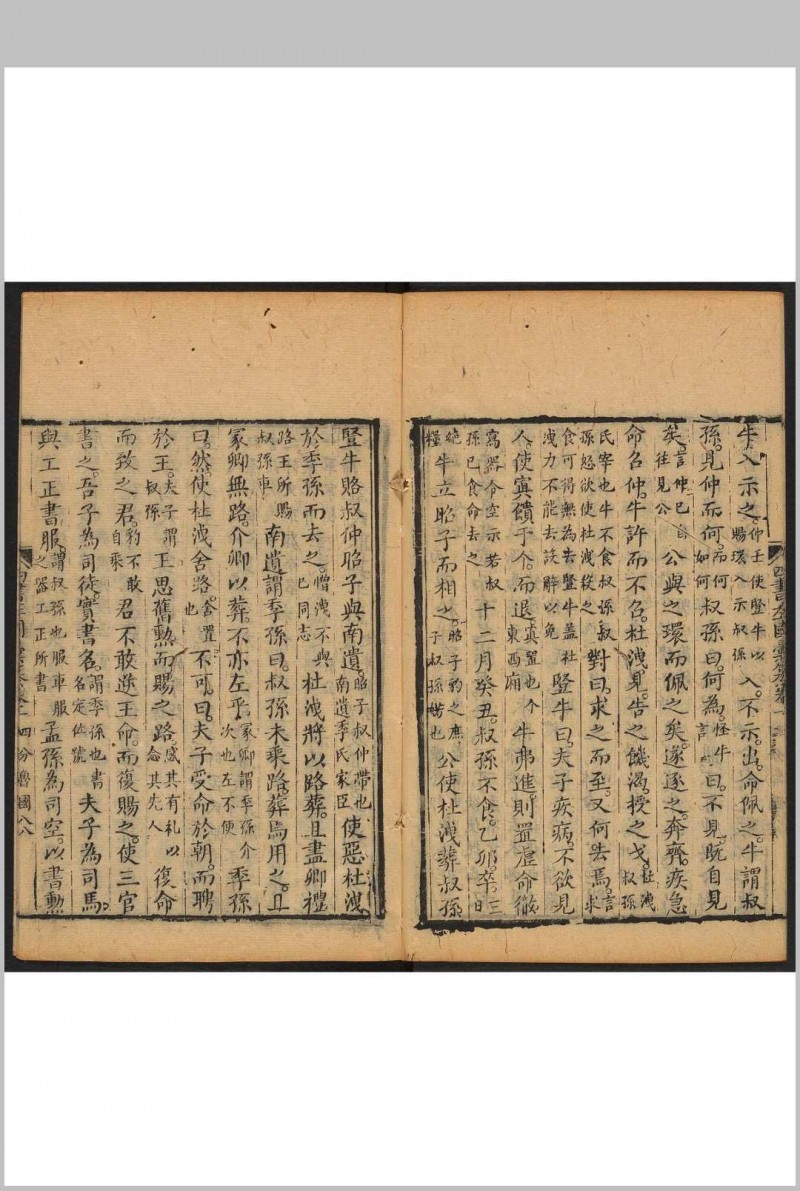 牛入示之仲壬使豎牛以賜環入示叔孫入不示出命佩之牛謂叔
孫見仲而何而何如何叔孫曰何為怪牛言曰不見既自見
矣言仲已自往見公公與之環而佩之矣遂逐之奔齊疾急
命召仲牛許而不召杜洩見告之饑渴授之戈杜洩叔孫
氏宰也牛不食叔孫叔孫怒欲使杜洩殺之對曰求之而至又何去焉言求
食可得無為去豎牛蓋杜洩力不能去設辭以免豎牛曰夫子疾病不欲見
人使寘饋于个而退寘置也个東西廂牛弗進則置虛命徹
寫器令空示若叔孫已食命去之十二月癸丑叔孫不食乙卯卒三日
絕糧牛立昭子而相之昭子豹之庶子叔孫婼也公使杜洩葬叔孫
豎牛賂叔仲昭子與南遺昭子叔仲帶也南遺季氏家臣使惡杜洩
於季孫而去之憎洩不與已同志杜洩將以路葬且盡卿禮
路王所賜叔孫車南遺謂季孫曰叔孫未乘路葬焉用之且
冢卿無路介卿以葬不亦左乎冢卿謂季孫介次也左不便季孫
曰然使杜洩舍路舍置也不可曰夫子受命於朝而聘
於王夫子謂叔孫王思舊勲而賜之路感其有礼以念其先人復命
而致之君豹不敢自乘君不敢逆王命而復賜之使三官
書之吾子為司徒實書名謂季孫也書名定位號夫子為司馬
與工正書服謂叔孫也服車服之器工正所書孟孫為司空以書勲
四分魯國八八